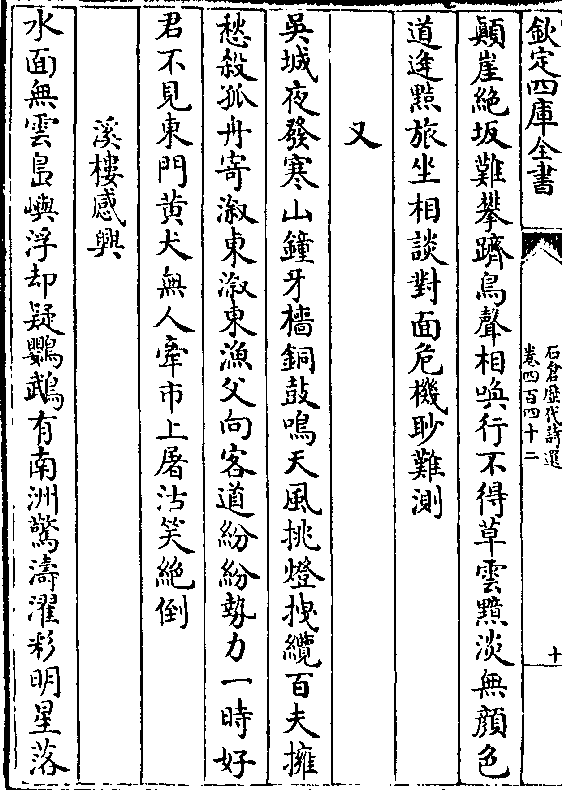 欽定四庫全書
石倉歴代詩選
卷四百四十二
十
顛崖絶坂難攀躋鳥聲相喚行不得草雲黯淡無顔色
道逢㸃旅坐相談對面危機眇難測
又
吳城夜發寒山鐘牙檣銅鼓鳴天風挑燈拽纜百夫擁
愁殺孤舟寄溆東溆東漁父向客道紛紛勢力一時好
君不見東門黄犬無人牽市上屠沽笑絶倒
溪樓感興
水面無雲島嶼浮却疑鸚鵡有南洲驚濤濯彩明星落